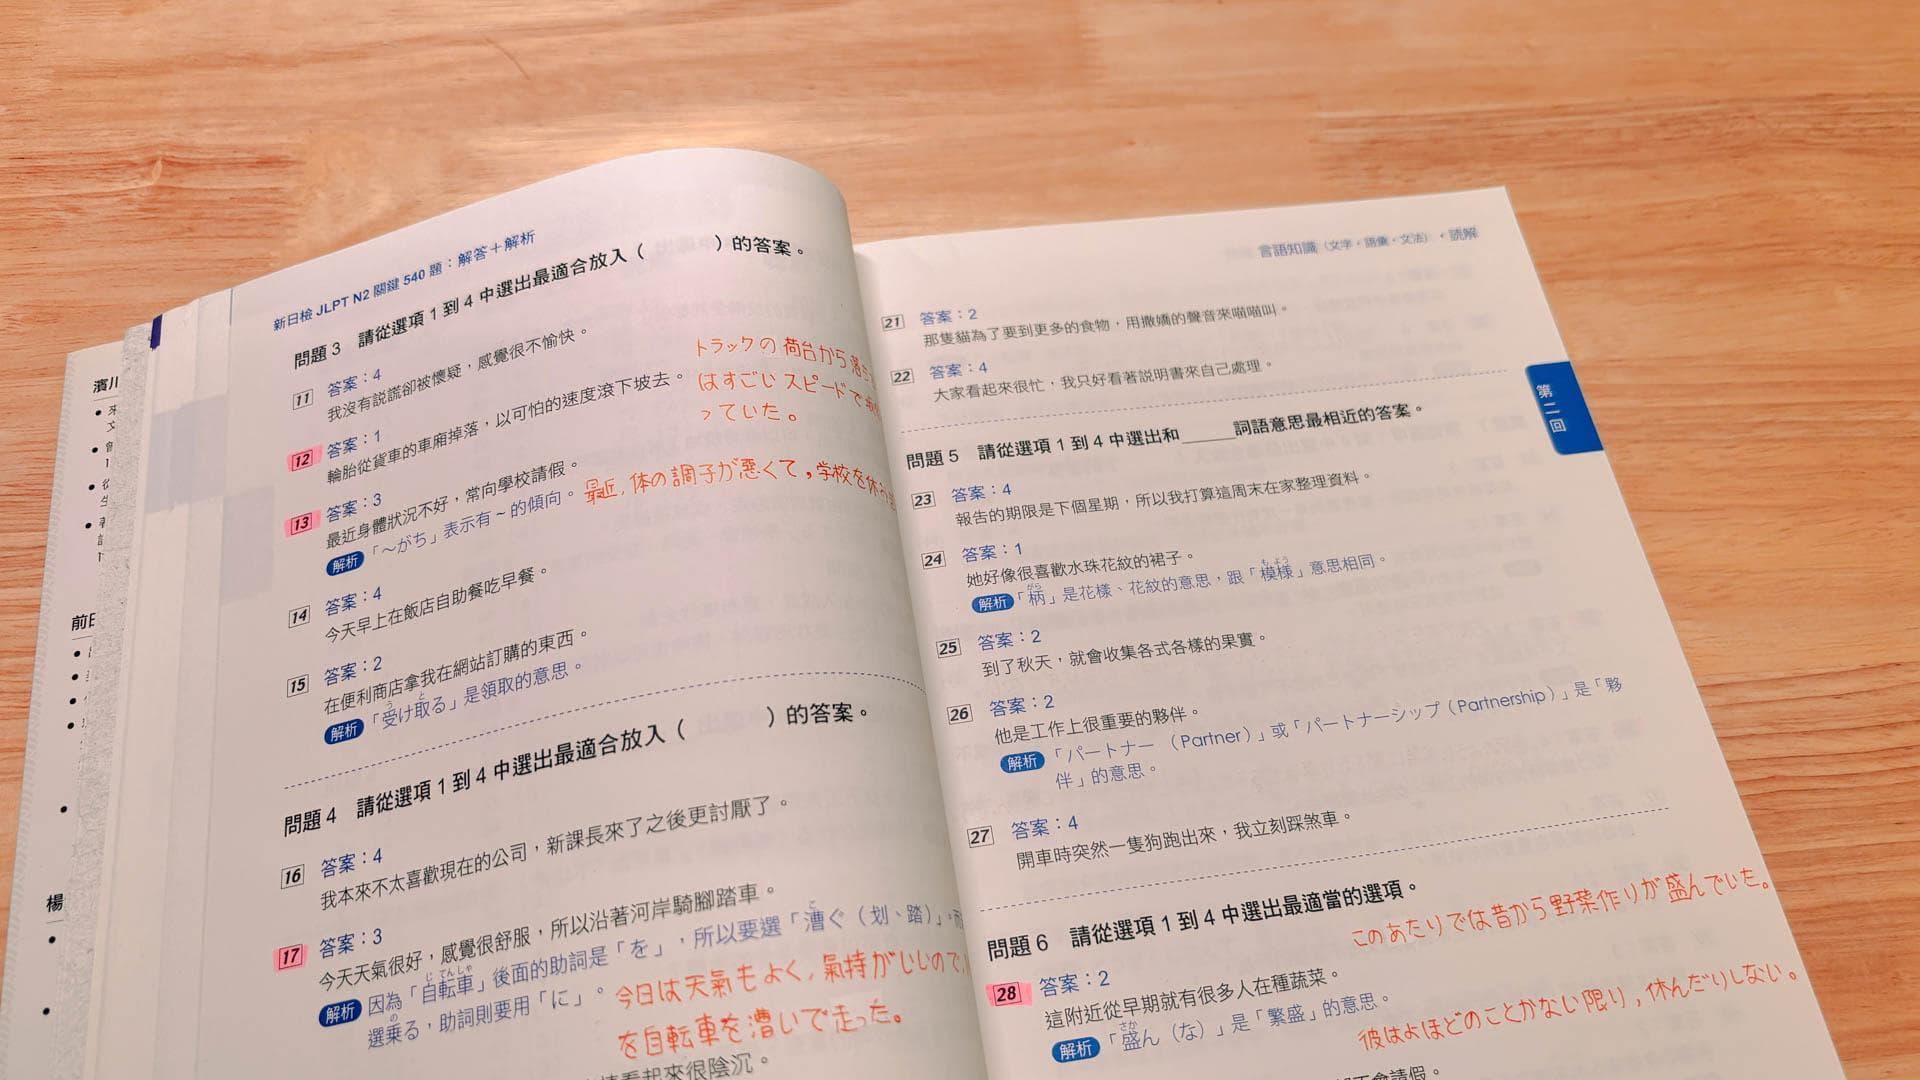 濱川
前日
楊
新日檢 JLPT N2 關鍵 540 題：解答＋解析
問題 3 請從選項 1 到 4 中選出最適合放入（ ）的答案。
11 答案：4
我沒有說謊卻被懷疑，感覺很不愉快。
トラックの荷台から落
12 答案：1
はすごいスピードで
輪胎從貨車的車廂掉落，以可怕的速度滾下坡去。
っていた。
13 答案：3
最近身體狀況不好，常向學校請假。
最近，体の調子が悪くて，学校を休
解析 「～がち」表示有～的傾向。
14 答案：4
今天早上在飯店自助餐吃早餐。
15 答案：2
在便利商店拿我在網站訂購的東西。
解析 「受け取る」是領取的意思。
問題 4 請從選項 1 到 4 中選出最適合放入（ ）的答案。
16 答案：4
我本來不太喜歡現在的公司，新課長來了之後更討厭了。
17 答案：3
今天天氣很好，感覺很舒服，所以沿著河岸騎腳踏車。
解析 因為「自転車」後面的助詞是「を」，所以要選「漕ぐ（划、踏）」。而
選乗る，助詞則要用「に」。
今日は天氣もよく，氣持がいいので，
を自転車を漕いで走った。
看起來很陰沉。
言語知識（文字・語彙・文法）・読解
21 答案：2
那隻貓為了要到更多的食物，用撒嬌的聲音來喵喵叫。
22 答案：4
大家看起來很忙，我只好看著說明書來自己處理。
第二回
問題 5 請從選項 1 到 4 中選出和＿＿＿詞語意思最相近的答案。
23 答案：4
報告的期限是下個星期，所以我打算這周末在家整理資料。
24 答案：1
她好像很喜歡水珠花紋的裙子。
解析 「柄」是花樣、花紋的意思，跟「模様」意思相同。
25 答案：2
到了秋天，就會收集各式各樣的果實。
26 答案：2
他是工作上很重要的夥伴。
解析 「パートナー （Partner）」或「パートナーシップ（Partnership）」是「夥
伴」的意思。
27 答案：4
開車時突然一隻狗跑出來，我立刻踩煞車。
問題 6 請從選項 1 到 4 中選出最適當的選項。
このあたりでは昔から野菜作りが盛んでいた。
28 答案：2
這附近從早期就有很多人在種蔬菜。
解析 「盛ん（な）」是「繁盛」的意思。
彼はよほどのことかない限り，休んだりしない。
不會請假。